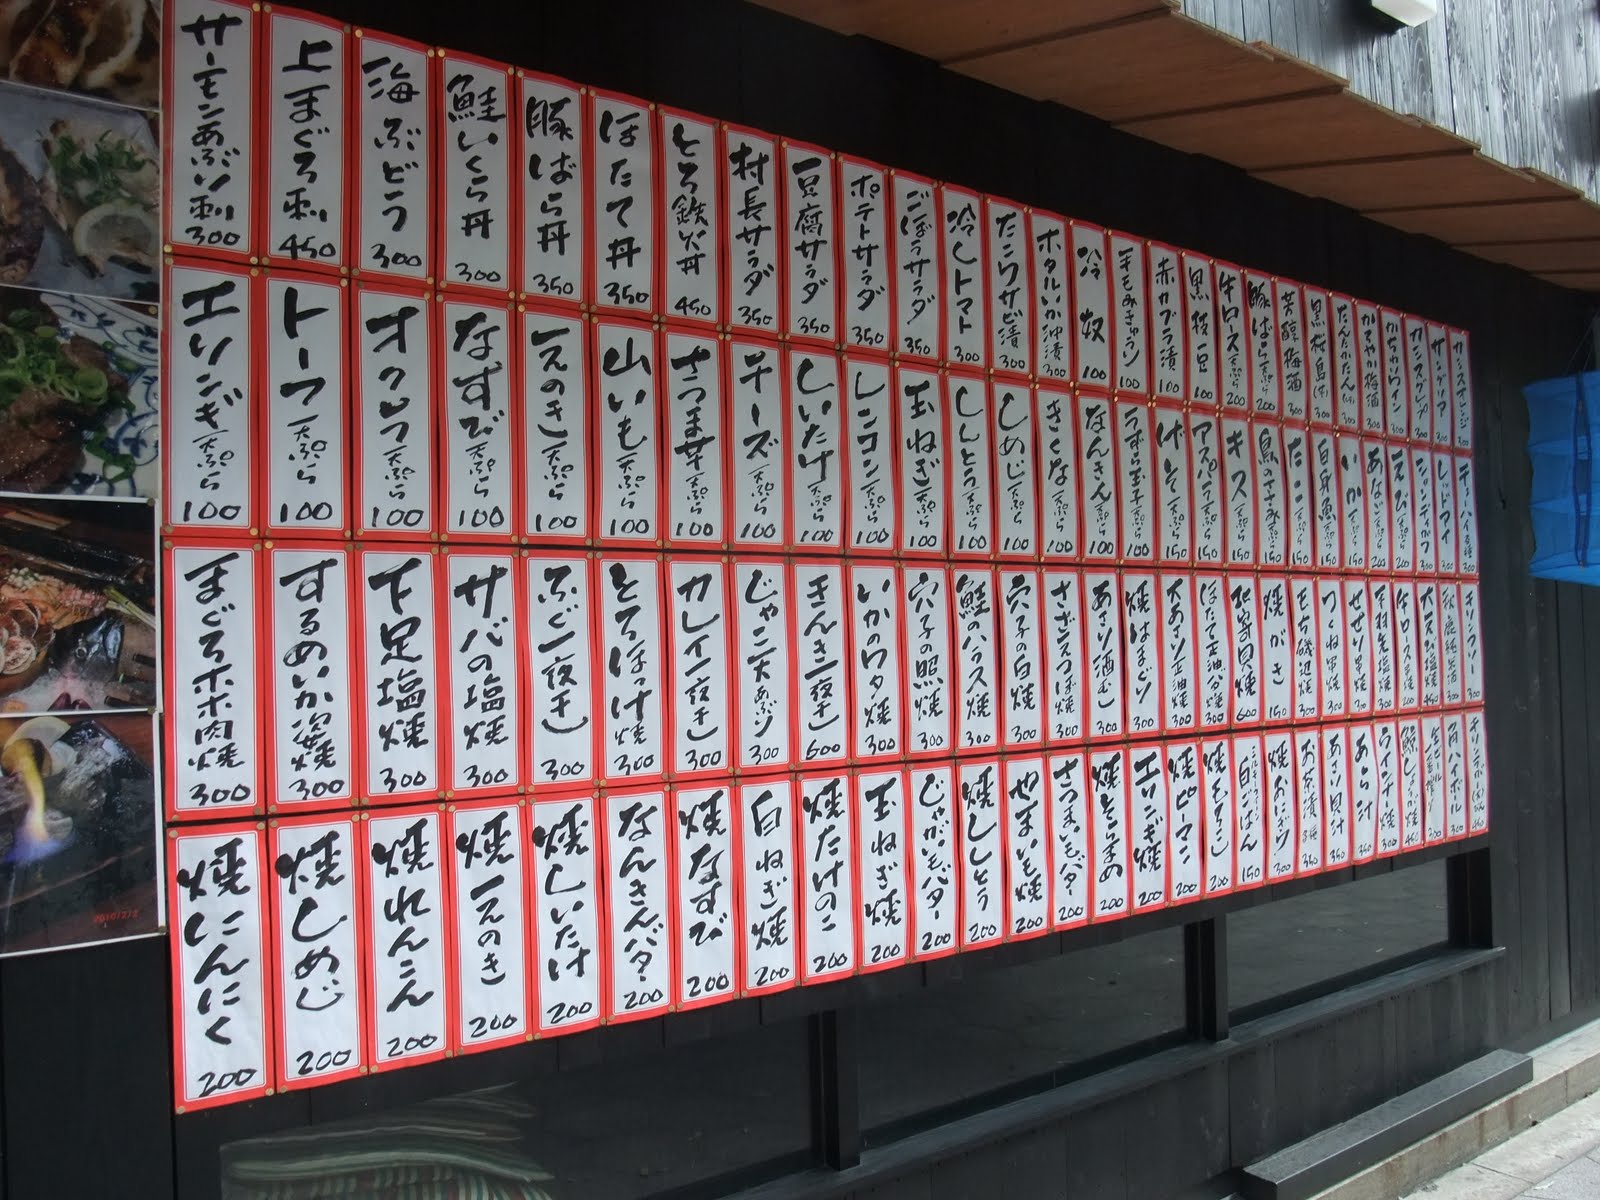 サーモンあぶり刺 300
上まぐろ刺 450
海ぶどう 300
鮭いくら丼 300
豚ばら丼 350
ほたて丼 350
とろ鉄火丼 450
村長サラダ 350
豆腐サラダ 350
ポテトサラダ 350
ごぼうサラダ 350
冷しトマト 300
たこワサビ漬 300
ホタルいか沖漬 300
冷奴 100
赤カブラ漬 100
黒枝豆 100
牛ロース天ぷら 200
豚ばら天ぷら 200
芳醇梅酒 300
エリンギ天ぷら 100
トーフ天ぷら 100
オクラ天ぷら 100
なすび天ぷら 100
えのき天ぷら 100
山いも天ぷら 100
さつま芋天ぷら 100
チーズ天ぷら 100
しいたけ天ぷら 100
レンコン天ぷら 100
玉ねぎ天ぷら 100
ししとう天ぷら 100
しめじ天ぷら 100
きくな天ぷら 100
なんきん天ぷら 100
うずら玉子天ぷら 100
げそ天ぷら 150
アスパラ天ぷら 150
キス天ぷら 150
鳥のささみ天ぷら 150
たこ天ぷら 150
白身魚天ぷら 150
いか天ぷら 150
あなご天ぷら 200
えび天ぷら 200
シャンディガフ 300
レッドアイ 300
まぐろホホ肉焼 300
するめいか姿焼 300
下足塩焼 300
サバの塩焼 300
ふぐ一夜干し 300
とろほっけ焼 300
カレイ一夜干し 300
じゃこ天あぶり 300
きんき一夜干し 600
いかのワタ焼 300
穴子の照焼 300
鮭のハラス焼 300
穴子の白焼 300
さざえつぼ焼 300
あさり酒むし 300
焼はまぐり 300
大あさり正油焼 300
ほたて正油バタ焼 300
焼がき 150
もち磯辺焼 300
つくね串焼 300
せせり串焼 300
手羽先塩焼 300
焼にんにく 200
焼しめじ 200
焼れんこん 200
焼えのき 200
焼しいたけ 200
なんきんバター 200
焼なすび 200
白ねぎ焼 200
焼たけのこ 200
玉ねぎ焼 200
じゃがいもバター 200
焼ししとう 200
やまいも焼 200
さつまいもバター 200
焼そらまめ 200
エリンギ焼 200
焼ピーマン 200
焼もろこし 200
白ごはん 150
焼おにぎり 300
お茶漬 350
あさり貝汁 350
あら汁 350
ウインナー焼 300
角ハイボール 300
2010/2/2